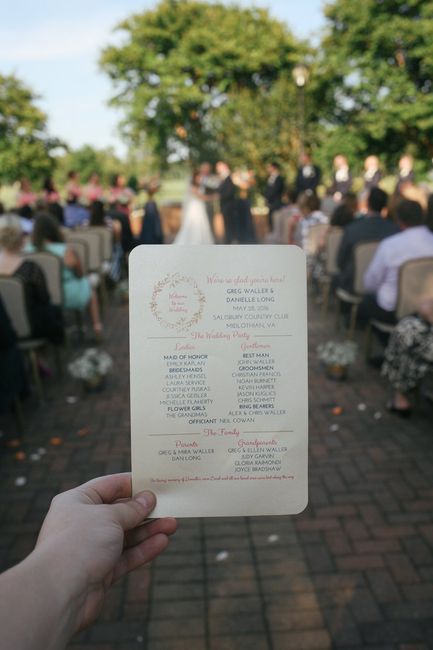 Welcome to our
Wedding
We're so glad you're here!
GREG WALLER &
DANIELLE LONG
MAY 28, 2016
SALISBURY COUNTRY CLUB
MIDLOTHIAN, VA
The Wedding Party
Ladies
MAID OF HONOR
EMILY KAPLAN
BRIDESMAIDS
ASHLEY HENSEL
LAURA SERVICE
COURTNEY PUSKAS
JESSICA GEISLER
MICHELLE FLAHERTY
FLOWER GIRLS
THE GRANDMAS
Gentlemen
BEST MAN
JOHN WALLER
GROOMSMEN
CHRISTIAN FARIAS
NOAH BURNETT
KEVIN HARPER
JASON KUGLICS
CHRIS SCHMITT
RING BEARERS
ALEX & CHRIS WALLER
OFFICIANT NEIL COWAN
The Family
Parents
GREG & MIRA WALLER
DAN LONG
Grandparents
GREG & ELLEN WALLER
JUDY GARVIN
GLORIA RAIMONDI
JOYCE BRADSHAW
loving memory of Danielle's mom Carol and all our loved ones were lost along the way